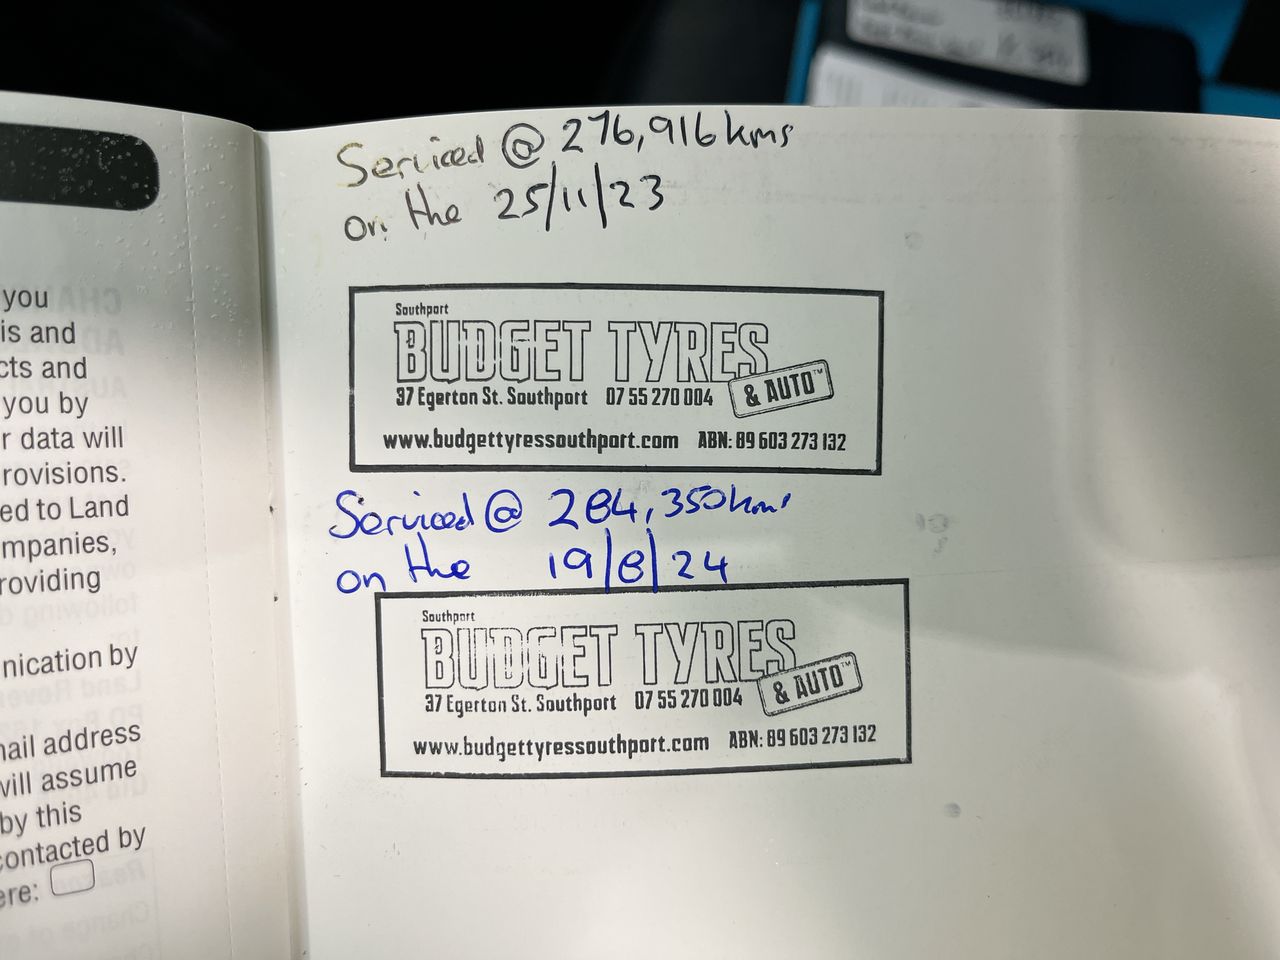 you
is and
cts and
you by
r data will
rovisions.
ed to Land
mpanies,
roviding
nication by
ail address
will assume
by this
contacted by
ere:
Serviced @ 276,916 kms
on the 25/11/23
Southport
BUDGET TYRES
& AUTO™
37 Egerton St. Southport 07 55 270 004
www.budgettyressouthport.com ABN: 89 603 273 132
Serviced @ 284,350 kms
on the 19/8/24
Southport
BUDGET TYRES
& AUTO™
37 Egerton St. Southport 07 55 270 004
www.budgettyressouthport.com ABN: 89 603 273 132